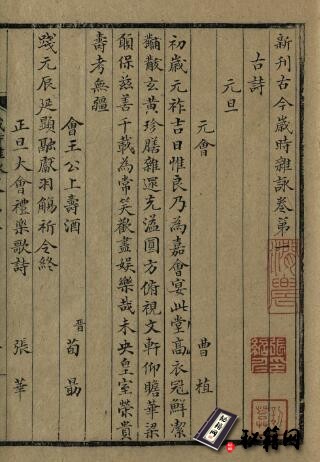 新刊古今歲時雜詠卷第
古詩
元旦
元會 曹植
初歲元祚吉日惟良乃為嘉會宴此堂高衣冠鮮潔
黼黻玄黃珍膳雜遝充溢圓方俯視文軒仰瞻華梁
願保茲善千載為常笑歡盡娛樂哉未央皇室榮貴
壽考無疆
會王公上壽酒 晋荀勗
踐元辰延顯融獻羽觴祈令終
正旦大會禮樂歌詩 張華
秘籍网